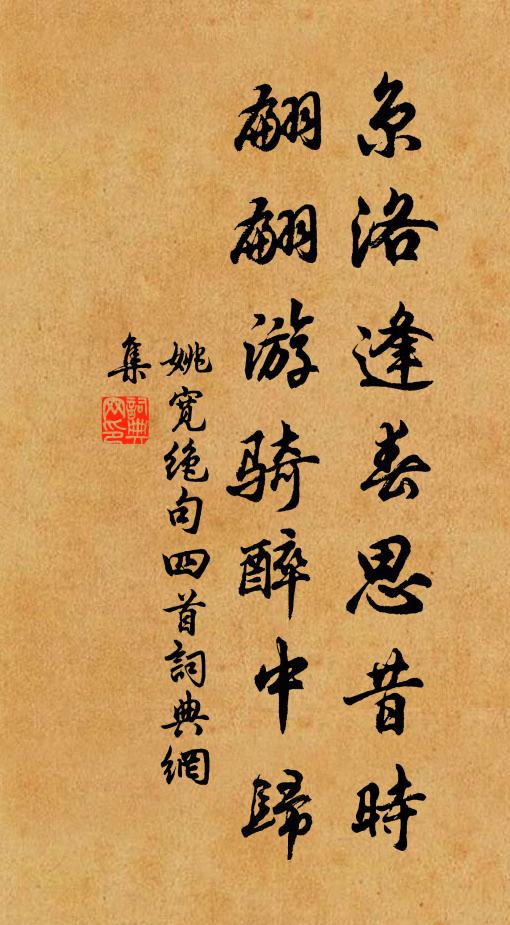 京洛逢春思昔時
翩翩游骑醉中歸
姚寬绝句四首詞典網
集
詞典
网印